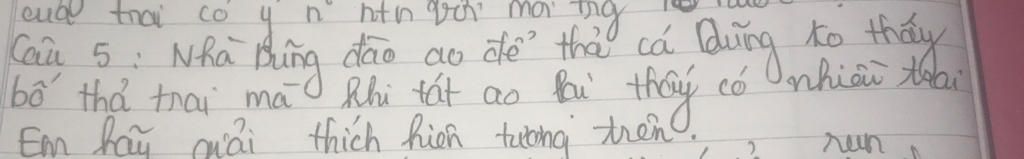 của trai có ý n htn với mọi tng
Câu 5 : Nhà Dũng đào ao để thả cá Dũng ko thấy
bố thả trai mà khi tát ao lại thấy có nhiều trai
Em hãy giải thích hiện tượng trên.